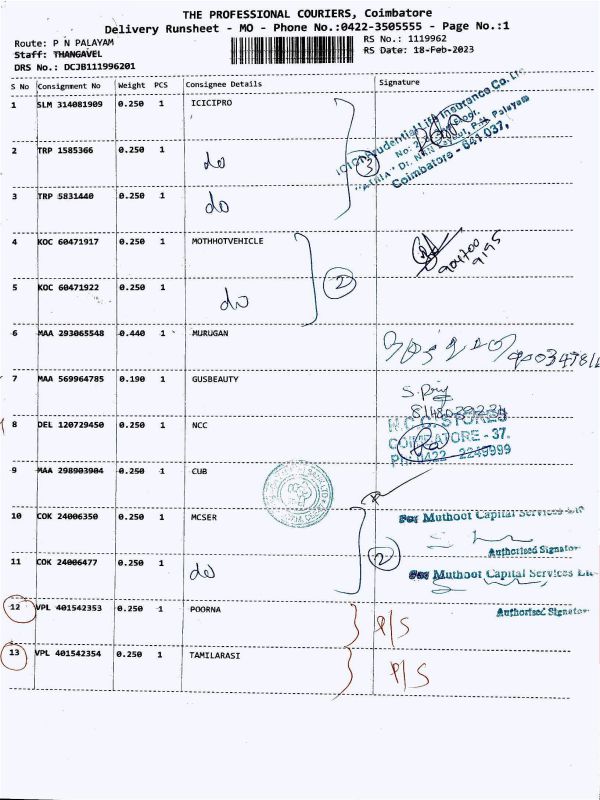 THE PROFESSIONAL COURIERS, Coimbatore
Delivery Runsheet - MO - Phone No.:0422-3505555 - Page No.:1
Route: P N PALAYAM
RS No.: 1119962
Staff: THANGAVEL
RS Date: 18-Feb-2023
DRS No.: DCJB111996201
S No Consignment No Weight PCS Consignee Details Signature
1 SLM 314081909 0.250 1 ICICIPRO
ICICI Prudential Life Insurance Co. Ltd
Coimbatore - 641 037,
2 TRP 1585366 0.250 1 do
3
3 TRP 5831440 0.250 1 do
4 KOC 60471917 0.250 1 MOTHHOTVEHICLE
904700
9195
5 KOC 60471922 0.250 1 do
2
6 MAA 293065548 0.440 1 MURUGAN
7 MAA 569964785 0.190 1 GUSBEAUTY
8 DEL 120729450 0.250 1 NCC
N.C.C. STORES
COIMBATORE - 37.
PH: 0422 - 2249999
9 MAA 298903904 0.250 1 CUB
10 COK 24006350 0.250 1 MCSER
For Muthoot Capital Services Ltd
Authorised Signator
11 COK 24006477 0.250 1 do
2
For Muthoot Capital Services Ltd
Authorised Signator
12 VPL 401542353 0.250 1 POORNA P/S
13 VPL 401542354 0.250 1 TAMILARASI P/S